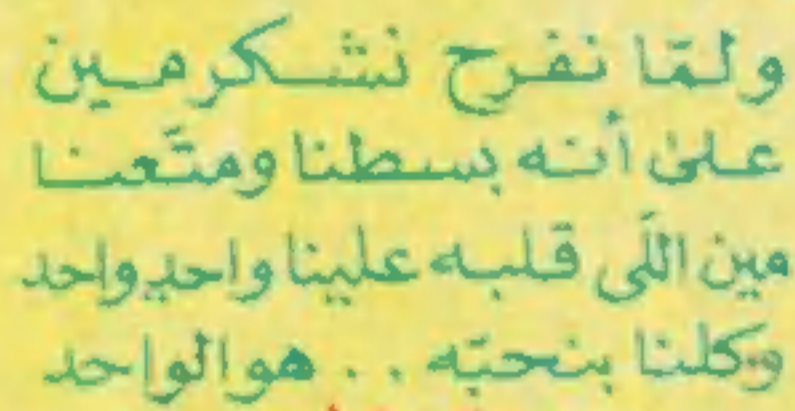 ولمّا نفرح نشكر مين
على أنه بسطنا ومتّعنا
مين اللّى قلبه علينا واحد واحد
وكلنا بنحبّه . . هو الواحد